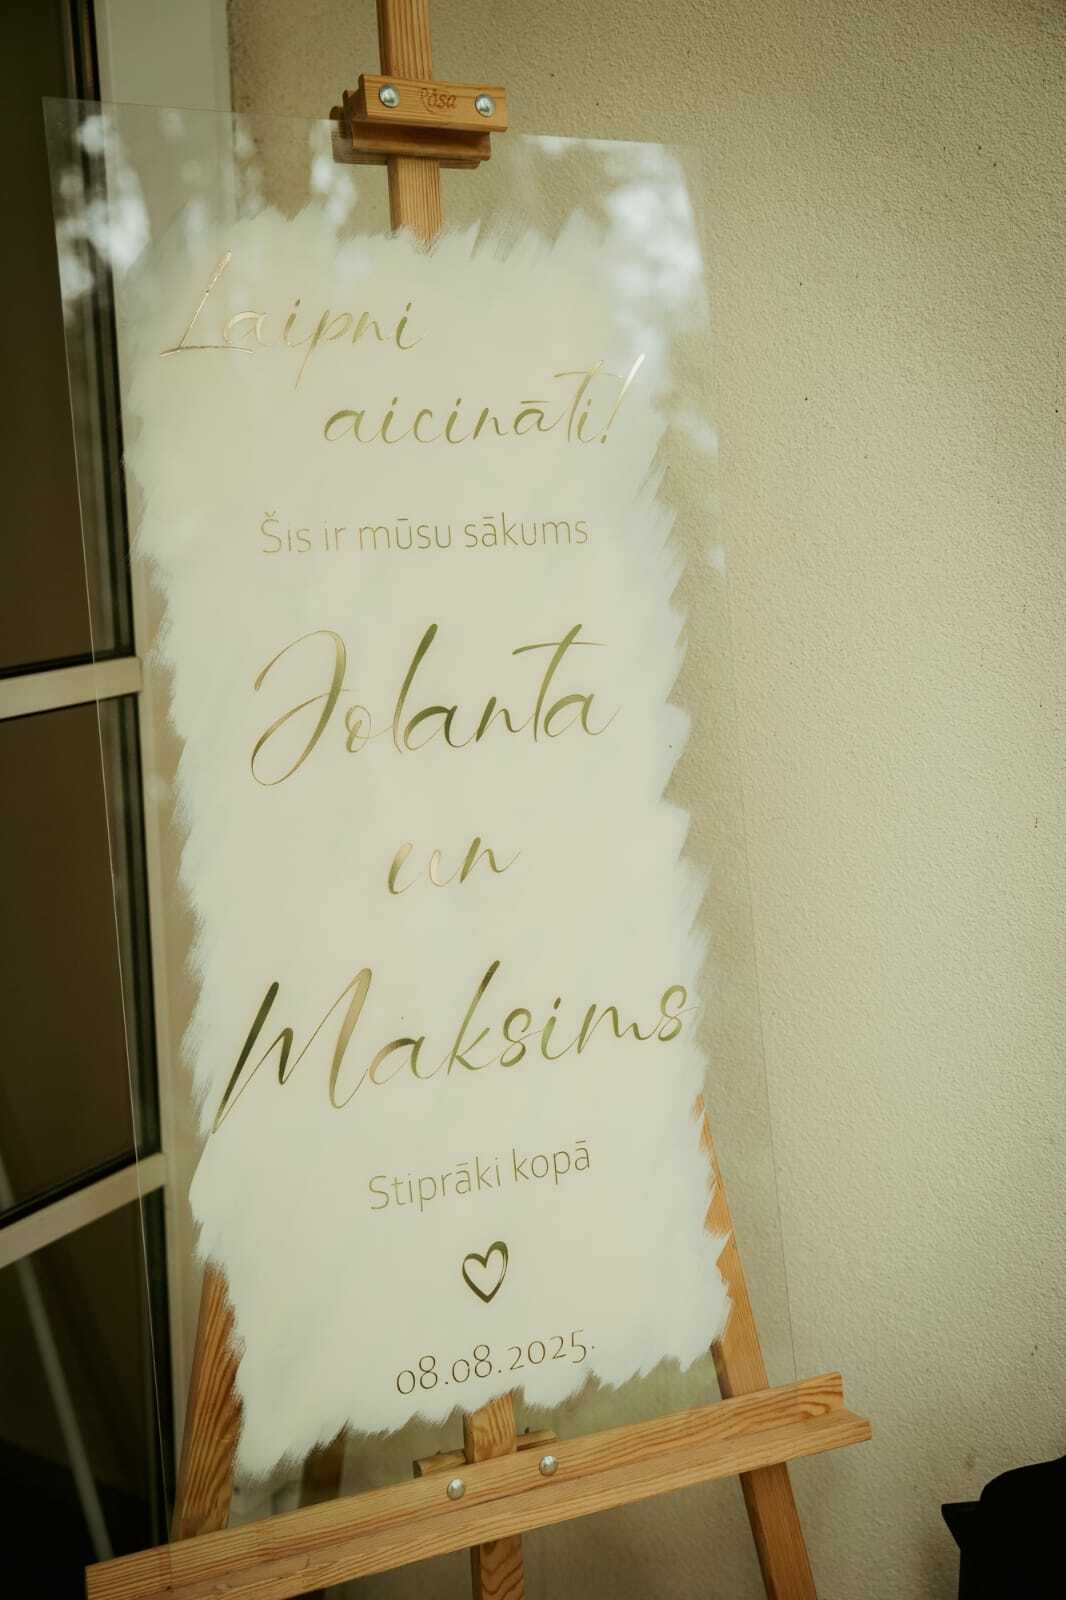 Rosa
Laipni
aicināti!
Šis ir mūsu sākums
Jolanta
un
Maksims
Stiprāki kopā
08.08.2025.